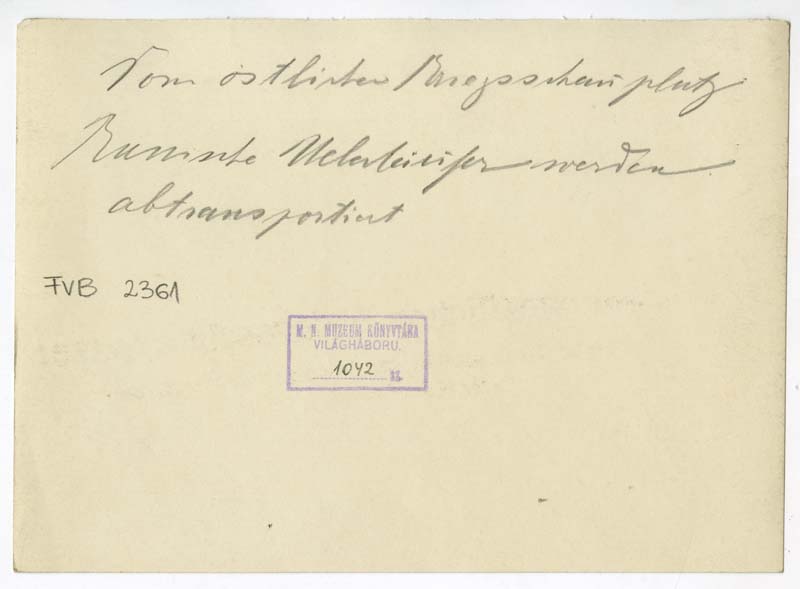 Vom östlichen Kriegsschauplatz
Russische Ueberläufer werden
abtransportiert
FVB 2361
M. N. MUZEUM KÖNYVTÁRA
VILÁGHÁBORU.
1042 sz.